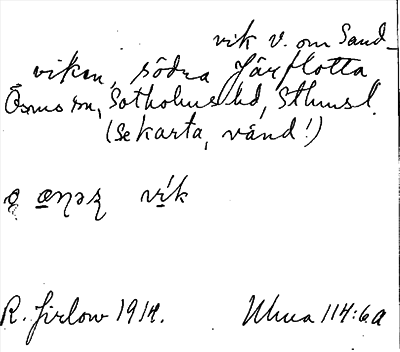 vik V. om Sand-
viken, södra Järflotta
Ösmo sn, Sotholms hd, Sthmsl.
(se karta, vänd!)
vík
R. Jirlow 1914. Ulma 114:6a